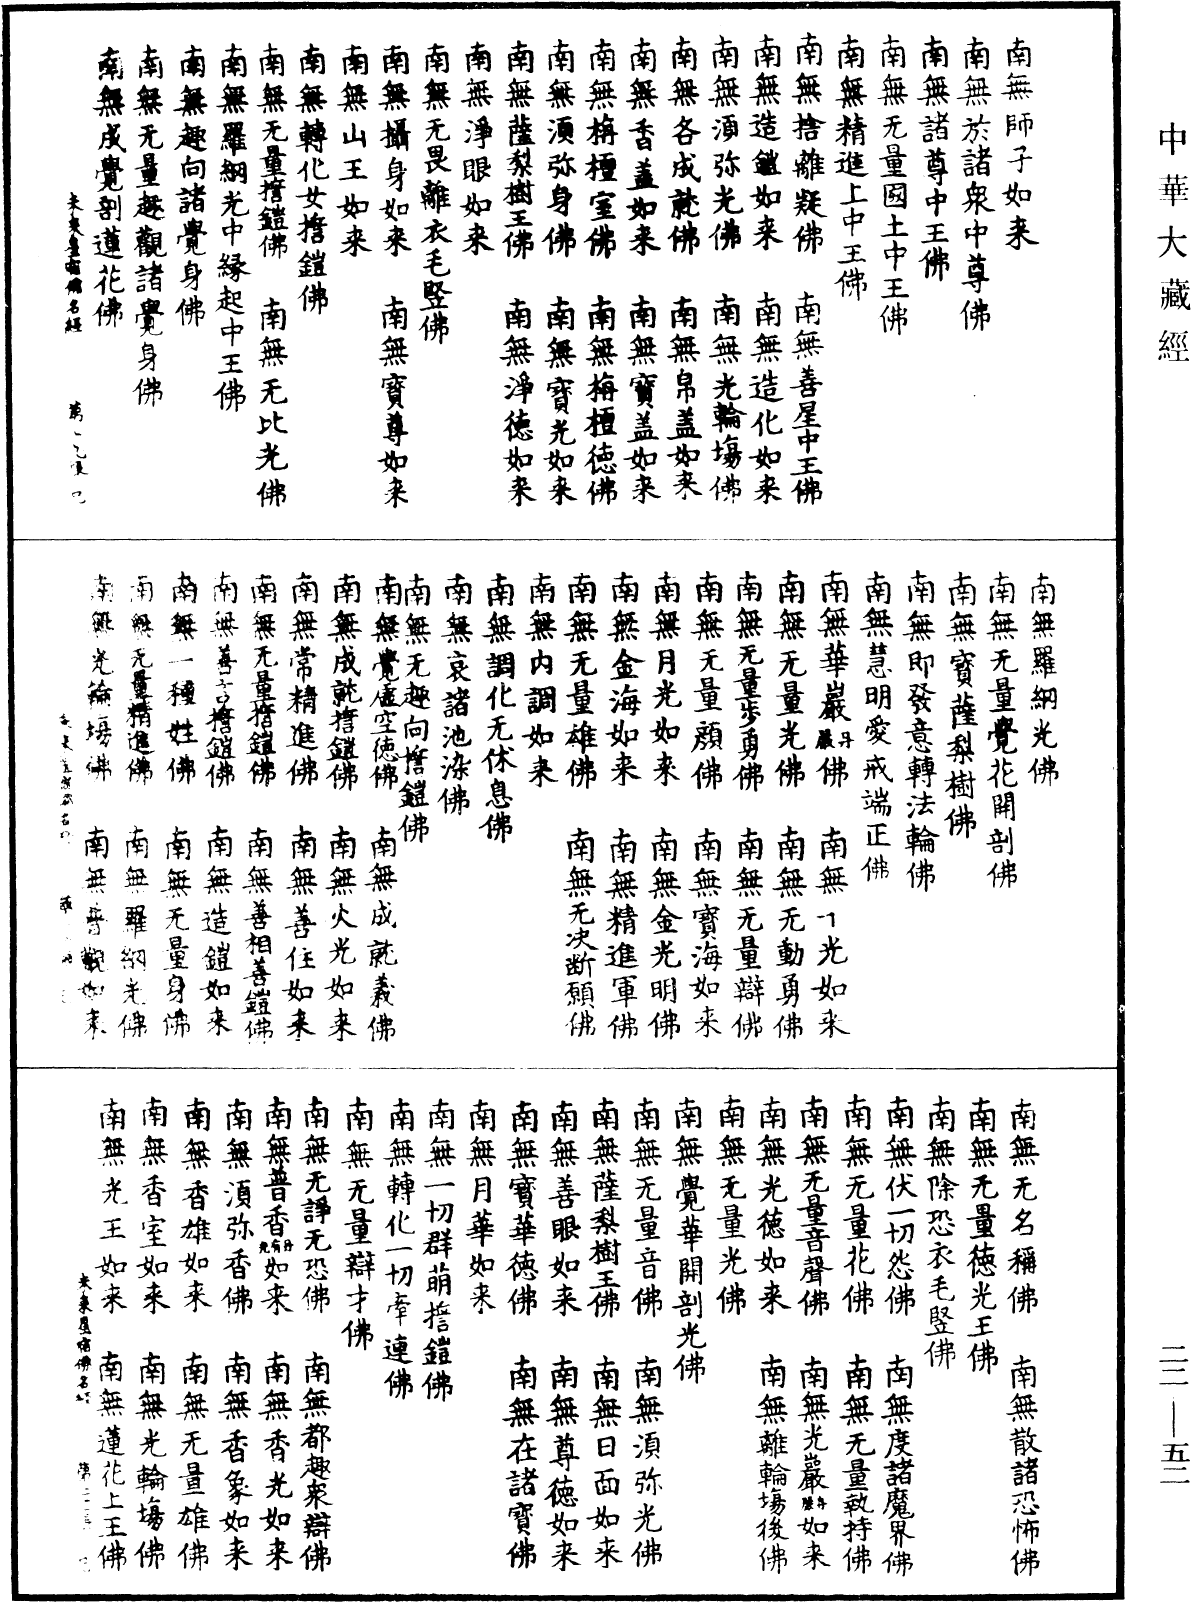 中華大藏經
南無師子如来
南無於諸衆中尊佛
南無諸尊中王佛
南無无量國土中王佛
南無精進上中王佛
南無捨離疑佛 南無善星中王佛
南無造鎧如来 南無造化如来
南無湏弥光佛 南無光輪塲佛
南無各成就佛 南無帛盖如来
南無香盖如来 南無寶盖如来
南無栴檀室佛 南無栴檀徳佛
南無湏弥身佛 南無寶光如来
南無薩梨樹王佛 南無淨徳如来
南無淨眼如来
南無无畏離衣毛竪佛
南無攝身如来 南無寶尊如来
南無山王如来
南無轉化女擔鎧佛
南無无量擔鎧佛 南無无比光佛
南無羅網光中縁起中王佛
南無趣向諸覺身佛
南無无量趣觀諸覺身佛
南無成覺剖蓮花佛
未来星宿佛名經
南無羅網光佛
南無无量覺花開剖佛
南無寶薩梨樹佛
南無即發意轉法輪佛
南無慧明愛戒端正佛
南無華巖丹嚴佛 南無光如来
南無无量光佛 南無无動勇佛
南無无量步勇佛 南無无量辯佛
南無无量顔佛 南無寶海如来
南無月光如来 南無金光明佛
南無金海如来 南無精進軍佛
南無无量雄佛 南無无决断願佛
南無内調如来
南無調化无休息佛
南無哀諸池染佛
南無无趣向擔鎧佛
南無覺虚空徳佛 南無成就義佛
南無成就擔鎧佛 南無火光如来
南無常精進佛 南無善住如来
南無无量擔鎧佛 南無善相善鎧佛
南無善擔鎧佛 南無造鎧如来
南無一種姓佛 南無无量身佛
南無无量精進佛 南無羅網光佛
南無光輪塲佛 南無觀如来
南無无名稱佛 南無散諸恐怖佛
南無无量徳光王佛
南無除恐衣毛竪佛
南無伏一切怨佛 南無度諸魔界佛
南無无量花佛 南無无量執持佛
南無无量音聲佛 南無光巖丹嚴如来
南無光徳如来 南無離輪塲後佛
南無无量光佛
南無覺華開剖光佛
南無无量音佛 南無湏弥光佛
南無薩梨樹王佛 南無日面如来
南無善眼如来 南無尊徳如来
南無寶華徳佛 南無在諸寶佛
南無月華如来
南無一切群萌擔鎧佛
南無轉化一切牽連佛
南無无量辯才佛
南無无諍无恐佛 南無都趣衆辯佛
南無普香丹有光如来 南無香光如来
南無湏弥香佛 南無香象如来
南無香雄如来 南無无量雄佛
南無香室如来 南無光輪塲佛
南無光王如来 南無蓮花上王佛
未来星宿佛名經
二二—五二